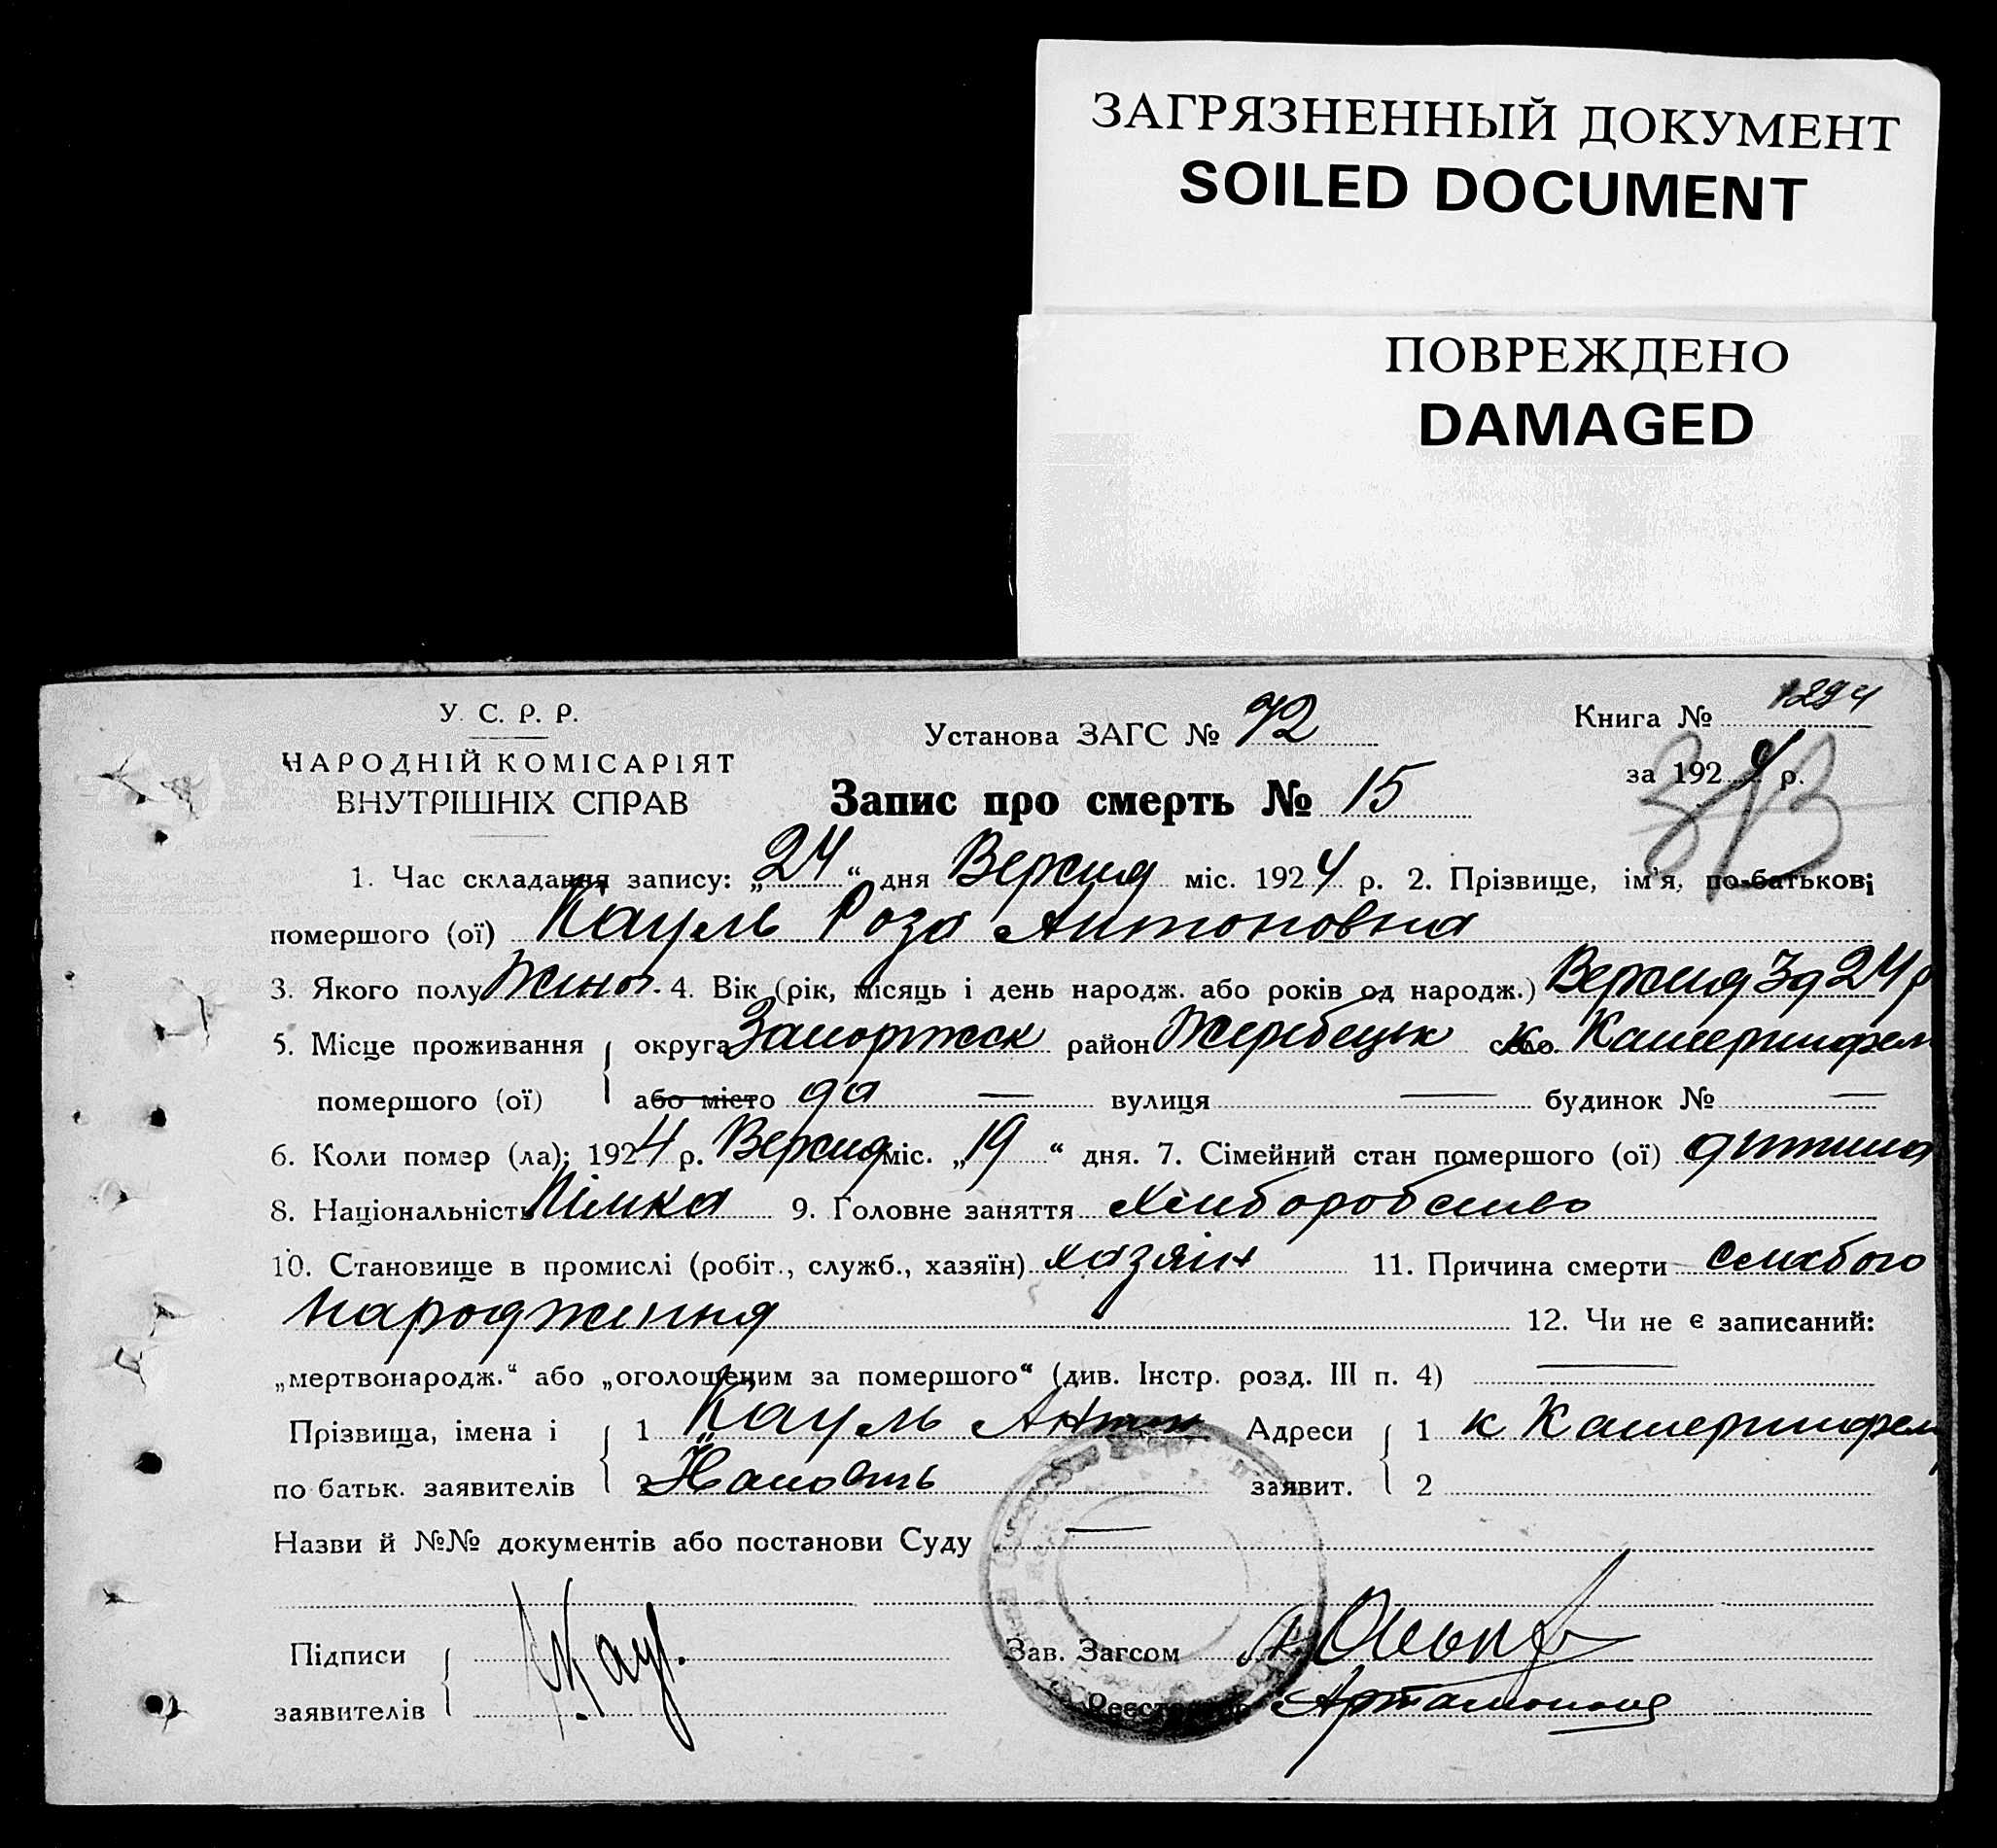 ЗАГРЯЗНЕННЫЙ ДОКУМЕНТ
SOILED DOCUMENT
ПОВРЕЖДЕНО
DAMAGED
У. С. Р. Р.
НАРОДНІЙ КОМІСАРІЯТ
ВНУТРІШНІХ СПРАВ
Установа ЗАГС № 72
Запис про смерть № 15
Книга № 1294
за 1924 р.
313
1. Час складання запису: „24“ дня Вересня міс. 1924 р. 2. Прізвище, ім'я, по-батькові
помершого (ої) Кауль Роза Антоновна
3. Якого полу жіно. 4. Вік (рік, місяць і день народж. або років од народж.) Вересня 3д 24р
5. Місце проживання округа Запоріжск район Жеребецьк село к. Катеринфель
помершого (ої) або місто да — вулиця — будинок № —
6. Коли помер (ла): 1924 р. Вересня міс. „19“ дня. 7. Сімейний стан помершого (ої) дитина
8. Національність Німка 9. Головне заняття хліборобство
10. Становище в промислі (робіт., служб., хазяїн) хазяін 11. Причина смерти слабого
народження 12. Чи не є записаний:
„мертвонародж.“ або „оголошеним за помершого“ (див. Інстр. розд. III п. 4) —
Прізвища, імена і 1 Кауль Антон Адреси 1 к Катеринфель
по батьк. заявителів 2 заявит. 2
Назви й №№ документів або постанови Суду —
Підписи Каул. Зав. Загсом
заявителів Реєстратор Артамонова